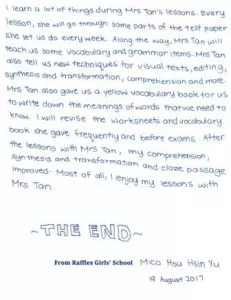 I learn a lot of things during Mrs Tan's lessons. Every
lesson, she will go through some parts of the test paper
she let us do every week. Along the way, Mrs Tan will
teach us some vocabulary and grammar items. Mrs Tan
also tell us new techniques for visual texts, editing,
synthesis and transformation, comprehension and more.
Mrs Tan also gave us a yellow vocabulary book for us
to write down the meanings of words that we need to
know. I will revise the worksheets and vocabulary
book she gave frequently and before exams. After
the lessons with Mrs Tan, my comprehension,
synthesis and transformation and cloze passage
improved. Most of all, I enjoy my lessons with
Mrs Tan.
~THE END~
From Raffles Girls' School Mico Hsu Hsin Yu
19 August 2017